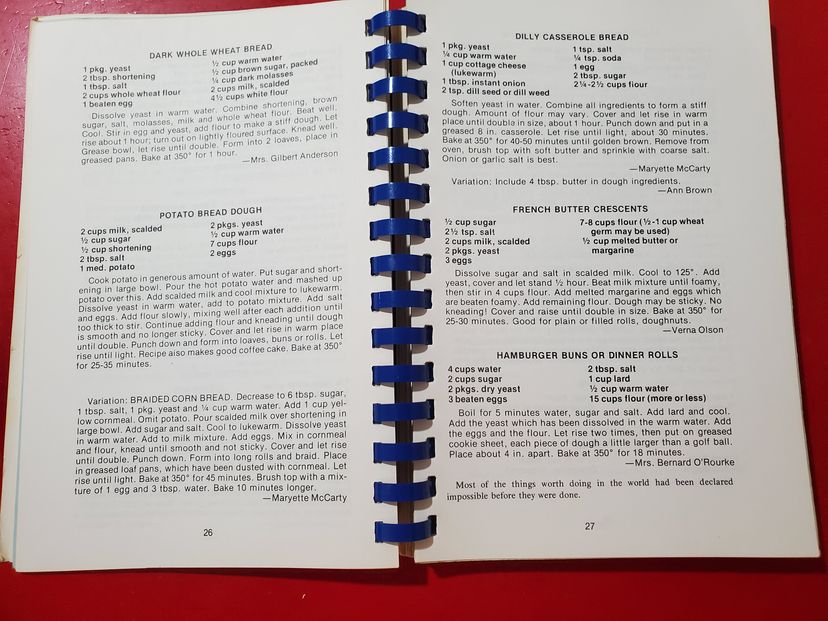 DARK WHOLE WHEAT BREAD
1 pkg. yeast
2 tbsp. shortening
1 tbsp. salt
2 cups whole wheat flour
1 beaten egg
½ cup warm water
½ cup brown sugar, packed
¼ cup dark molasses
2 cups milk, scalded
4½ cups white flour
Dissolve yeast in warm water. Combine shortening, brown
sugar, salt, molasses, milk and whole wheat flour. Beat well.
Cool. Stir in egg and yeast, add flour to make a stiff dough. Let
rise about 1 hour; turn out on lightly floured surface. Knead well.
Grease bowl, let rise until double. Form into 2 loaves, place in
greased pans. Bake at 350° for 1 hour.
—Mrs. Gilbert Anderson
POTATO BREAD DOUGH
2 cups milk, scalded
½ cup sugar
½ cup shortening
2 tbsp. salt
1 med. potato
2 pkgs. yeast
½ cup warm water
7 cups flour
2 eggs
Cook potato in generous amount of water. Put sugar and short-
ening in large bowl. Pour the hot potato water and mashed up
potato over this. Add scalded milk and cool mixture to lukewarm.
Dissolve yeast in warm water, add to potato mixture. Add salt
and eggs. Add flour slowly, mixing well after each addition until
too thick to stir. Continue adding flour and kneading until dough
is smooth and no longer sticky. Cover and let rise in warm place
until double. Punch down and form into loaves, buns or rolls. Let
rise until light. Recipe also makes good coffee cake. Bake at 350°
for 25-35 minutes.
Variation: BRAIDED CORN BREAD. Decrease to 6 tbsp. sugar,
1 tbsp. salt, 1 pkg. yeast and ¼ cup warm water. Add 1 cup yel-
low cornmeal. Omit potato. Pour scalded milk over shortening in
large bowl. Add sugar and salt. Cool to lukewarm. Dissolve yeast
in warm water. Add to milk mixture. Add eggs. Mix in cornmeal
and flour, knead until smooth and not sticky. Cover and let rise
until double. Punch down. Form into long rolls and braid. Place
in greased loaf pans, which have been dusted with cornmeal. Let
rise until light. Bake at 350° for 45 minutes. Brush top with a mix-
ture of 1 egg and 3 tbsp. water. Bake 10 minutes longer.
—Maryette McCarty
26
DILLY CASSEROLE BREAD
1 pkg. yeast
¼ cup warm water
1 cup cottage cheese
(lukewarm)
1 tbsp. instant onion
2 tsp. dill seed or dill weed
1 tsp. salt
¼ tsp. soda
1 egg
2 tbsp. sugar
2¼-2½ cups flour
Soften yeast in water. Combine all ingredients to form a stiff
dough. Amount of flour may vary. Cover and let rise in warm
place until double in size, about 1 hour. Punch down and put in a
greased 8 in. casserole. Let rise until light, about 30 minutes.
Bake at 350° for 40-50 minutes until golden brown. Remove from
oven, brush top with soft butter and sprinkle with coarse salt.
Onion or garlic salt is best.
—Maryette McCarty
Variation: Include 4 tbsp. butter in dough ingredients.
—Ann Brown
FRENCH BUTTER CRESCENTS
½ cup sugar
2½ tsp. salt
2 cups milk, scalded
2 pkgs. yeast
3 eggs
7-8 cups flour (½-1 cup wheat
germ may be used)
½ cup melted butter or
margarine
Dissolve sugar and salt in scalded milk. Cool to 125°. Add
yeast, cover and let stand ½ hour. Beat milk mixture until foamy,
then stir in 4 cups flour. Add melted margarine and eggs which
are beaten foamy. Add remaining flour. Dough may be sticky. No
kneading! Cover and raise until double in size. Bake at 350° for
25-30 minutes. Good for plain or filled rolls, doughnuts.
—Verna Olson
HAMBURGER BUNS OR DINNER ROLLS
4 cups water
2 cups sugar
2 pkgs. dry yeast
3 beaten eggs
2 tbsp. salt
1 cup lard
½ cup warm water
15 cups flour (more or less)
Boil for 5 minutes water, sugar and salt. Add lard and cool.
Add the yeast which has been dissolved in the warm water. Add
the eggs and the flour. Let rise two times, then put on greased
cookie sheet, each piece of dough a little larger than a golf ball.
Place about 4 in. apart. Bake at 350° for 18 minutes.
—Mrs. Bernard O'Rourke
Most of the things worth doing in the world had been declared
impossible before they were done.
27